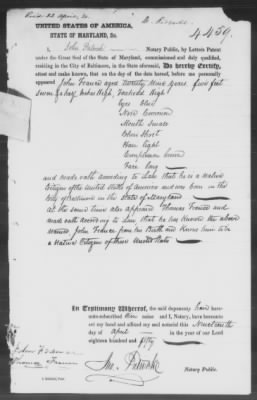 4459.
UNITED STATES OF AMERICA,
STATE OF MARYLAND, Sc.
I, John
Notary Public, by Letters Patent
under the Great Seal of the State of Maryland, commissioned and duly qualified,
residing in the City of Baltimore, in the State aforesaid, Do hereby Certify,
attest and make known, that on the day of the date hereof, before me personally
appeared John France aged Twenty Nine years five feet
Seven & a half Inches High, Forehead High
Eyes Blue
Nose Common
Mouth Small
Chin Short
Hair Light
Complexion
Face Long
and made oath according to Law that he is a Native
Citizen of the United States of America and was born in the
City of Baltimore in the State of Maryland
At the same time also appeared Thomas France and
made oath according to Law that he has known the above
named John France from his Birth and knows him to be
a Native Citizen of these United States
In Testimony Whereof, the said deponents have
hereunto subscribed their names and I, Notary, have hereunto
set my hand and affixed my seal notarial this Nineteenth
day of April in the year of our Lord
eighteen hundred and fifty
John France
Thomas France
Jno.
Notary Public.